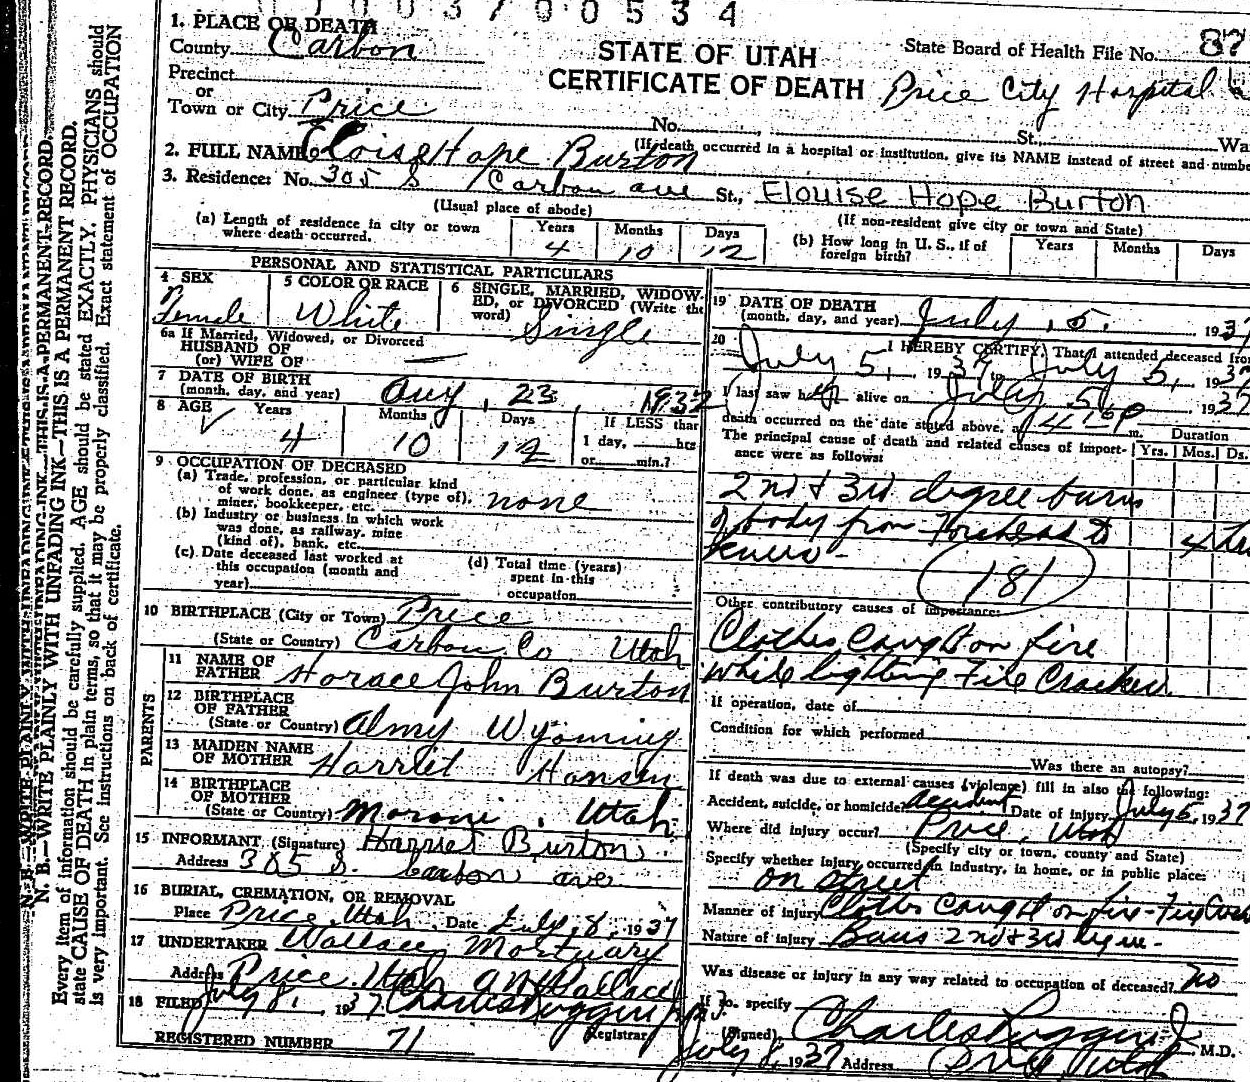 1003700534
1. PLACE OF DEATH
County Carbon
STATE OF UTAH
CERTIFICATE OF DEATH
State Board of Health File No. 87
Precinct
or
Town or City Price
Price City Hospital
No. St., Wa
(If death occurred in a hospital or institution, give its NAME instead of street and numbe
2. FULL NAME Eloise Hope Burton
3. Residence: No. 305 S Carbon ave St., Elouise Hope Burton
(Usual place of abode)
(If non-resident give city or town and State)
(a) Length of residence in city or town where death occurred. Years 4 Months 10 Days 12
(b) How long in U. S., if of foreign birth? Years Months Days
PERSONAL AND STATISTICAL PARTICULARS
4 SEX Female
5 COLOR OR RACE White
6 SINGLE, MARRIED, WIDOWED, or DIVORCED (Write the word) Single
6a If Married, Widowed, or Divorced
HUSBAND OF
(or) WIFE OF —
7 DATE OF BIRTH
(month, day, and year) Aug, 23, 1932
8 AGE Years 4 Months 10 Days 12
If LESS than
1 day, hrs
or min.?
9 OCCUPATION OF DECEASED
(a) Trade, profession, or particular kind
of work done, as engineer (type of), none
miner, bookkeeper, etc.
(b) Industry or business in which work
was done, as railway, mine
(kind of), bank, etc.
(c) Date deceased last worked at
this occupation (month and
year)
(d) Total time (years)
spent in this
occupation
10 BIRTHPLACE (City or Town) Price
(State or Country) Carbon Co Utah
PARENTS
11 NAME OF
FATHER Horace John Burton
12 BIRTHPLACE
OF FATHER
(State or Country) Almy Wyoming
13 MAIDEN NAME
OF MOTHER Harriet Hansen
14 BIRTHPLACE
OF MOTHER
(State or Country) Moroni, Utah
15 INFORMANT (Signature) Harriet Burton
Address 305 S. Carbon ave.
16 BURIAL, CREMATION, OR REMOVAL
Place Price, Utah Date July 8, 1937
17 UNDERTAKER Wallace Mortuary
Address Price, Utah Wallace
18 FILED July 8, 1937 Charles Ruggeri Jr
Registrar
REGISTERED NUMBER 71
19 DATE OF DEATH
(month, day, and year) July 5, 1937
20 I HEREBY CERTIFY, That I attended deceased from
July 5, 1937 to July 5, 1937
I last saw her alive on July 5, 1937
death occurred on the date stated above, at m.
The principal cause of death and related causes of importance were as follows: Duration Yrs. Mos. Ds.
2nd & 3rd degree burns
of body from forehead to
knees - 4
181
Other contributory causes of importance:
Clothes caught on fire
while lighting Fire Cracker
If operation, date of
Condition for which performed
Was there an autopsy?
If death was due to external causes (violence) fill in also the following:
Accident, suicide, or homicide accident Date of injury July 5, 1937
Where did injury occur? Price, Utah
(Specify city or town, county and State)
Specify whether injury occurred in industry, in home, or in public place:
on street
Manner of injury Clothes caught on fire - Fire Crack
Nature of injury Burns 2nd & 3rd degree -
Was disease or injury in any way related to occupation of deceased? no
If so, specify
(Signed) Charles Ruggeri Jr M.D.
July 8, 1937 Address Price Utah
N. B.—WRITE PLAINLY WITH UNFADING INK—THIS IS A PERMANENT RECORD.
Every item of information should be carefully supplied. AGE should be stated EXACTLY. PHYSICIANS should
state CAUSE OF DEATH in plain terms, so that it may be properly classified. Exact statement of OCCUPATION
is very important. See instructions on back of certificate.